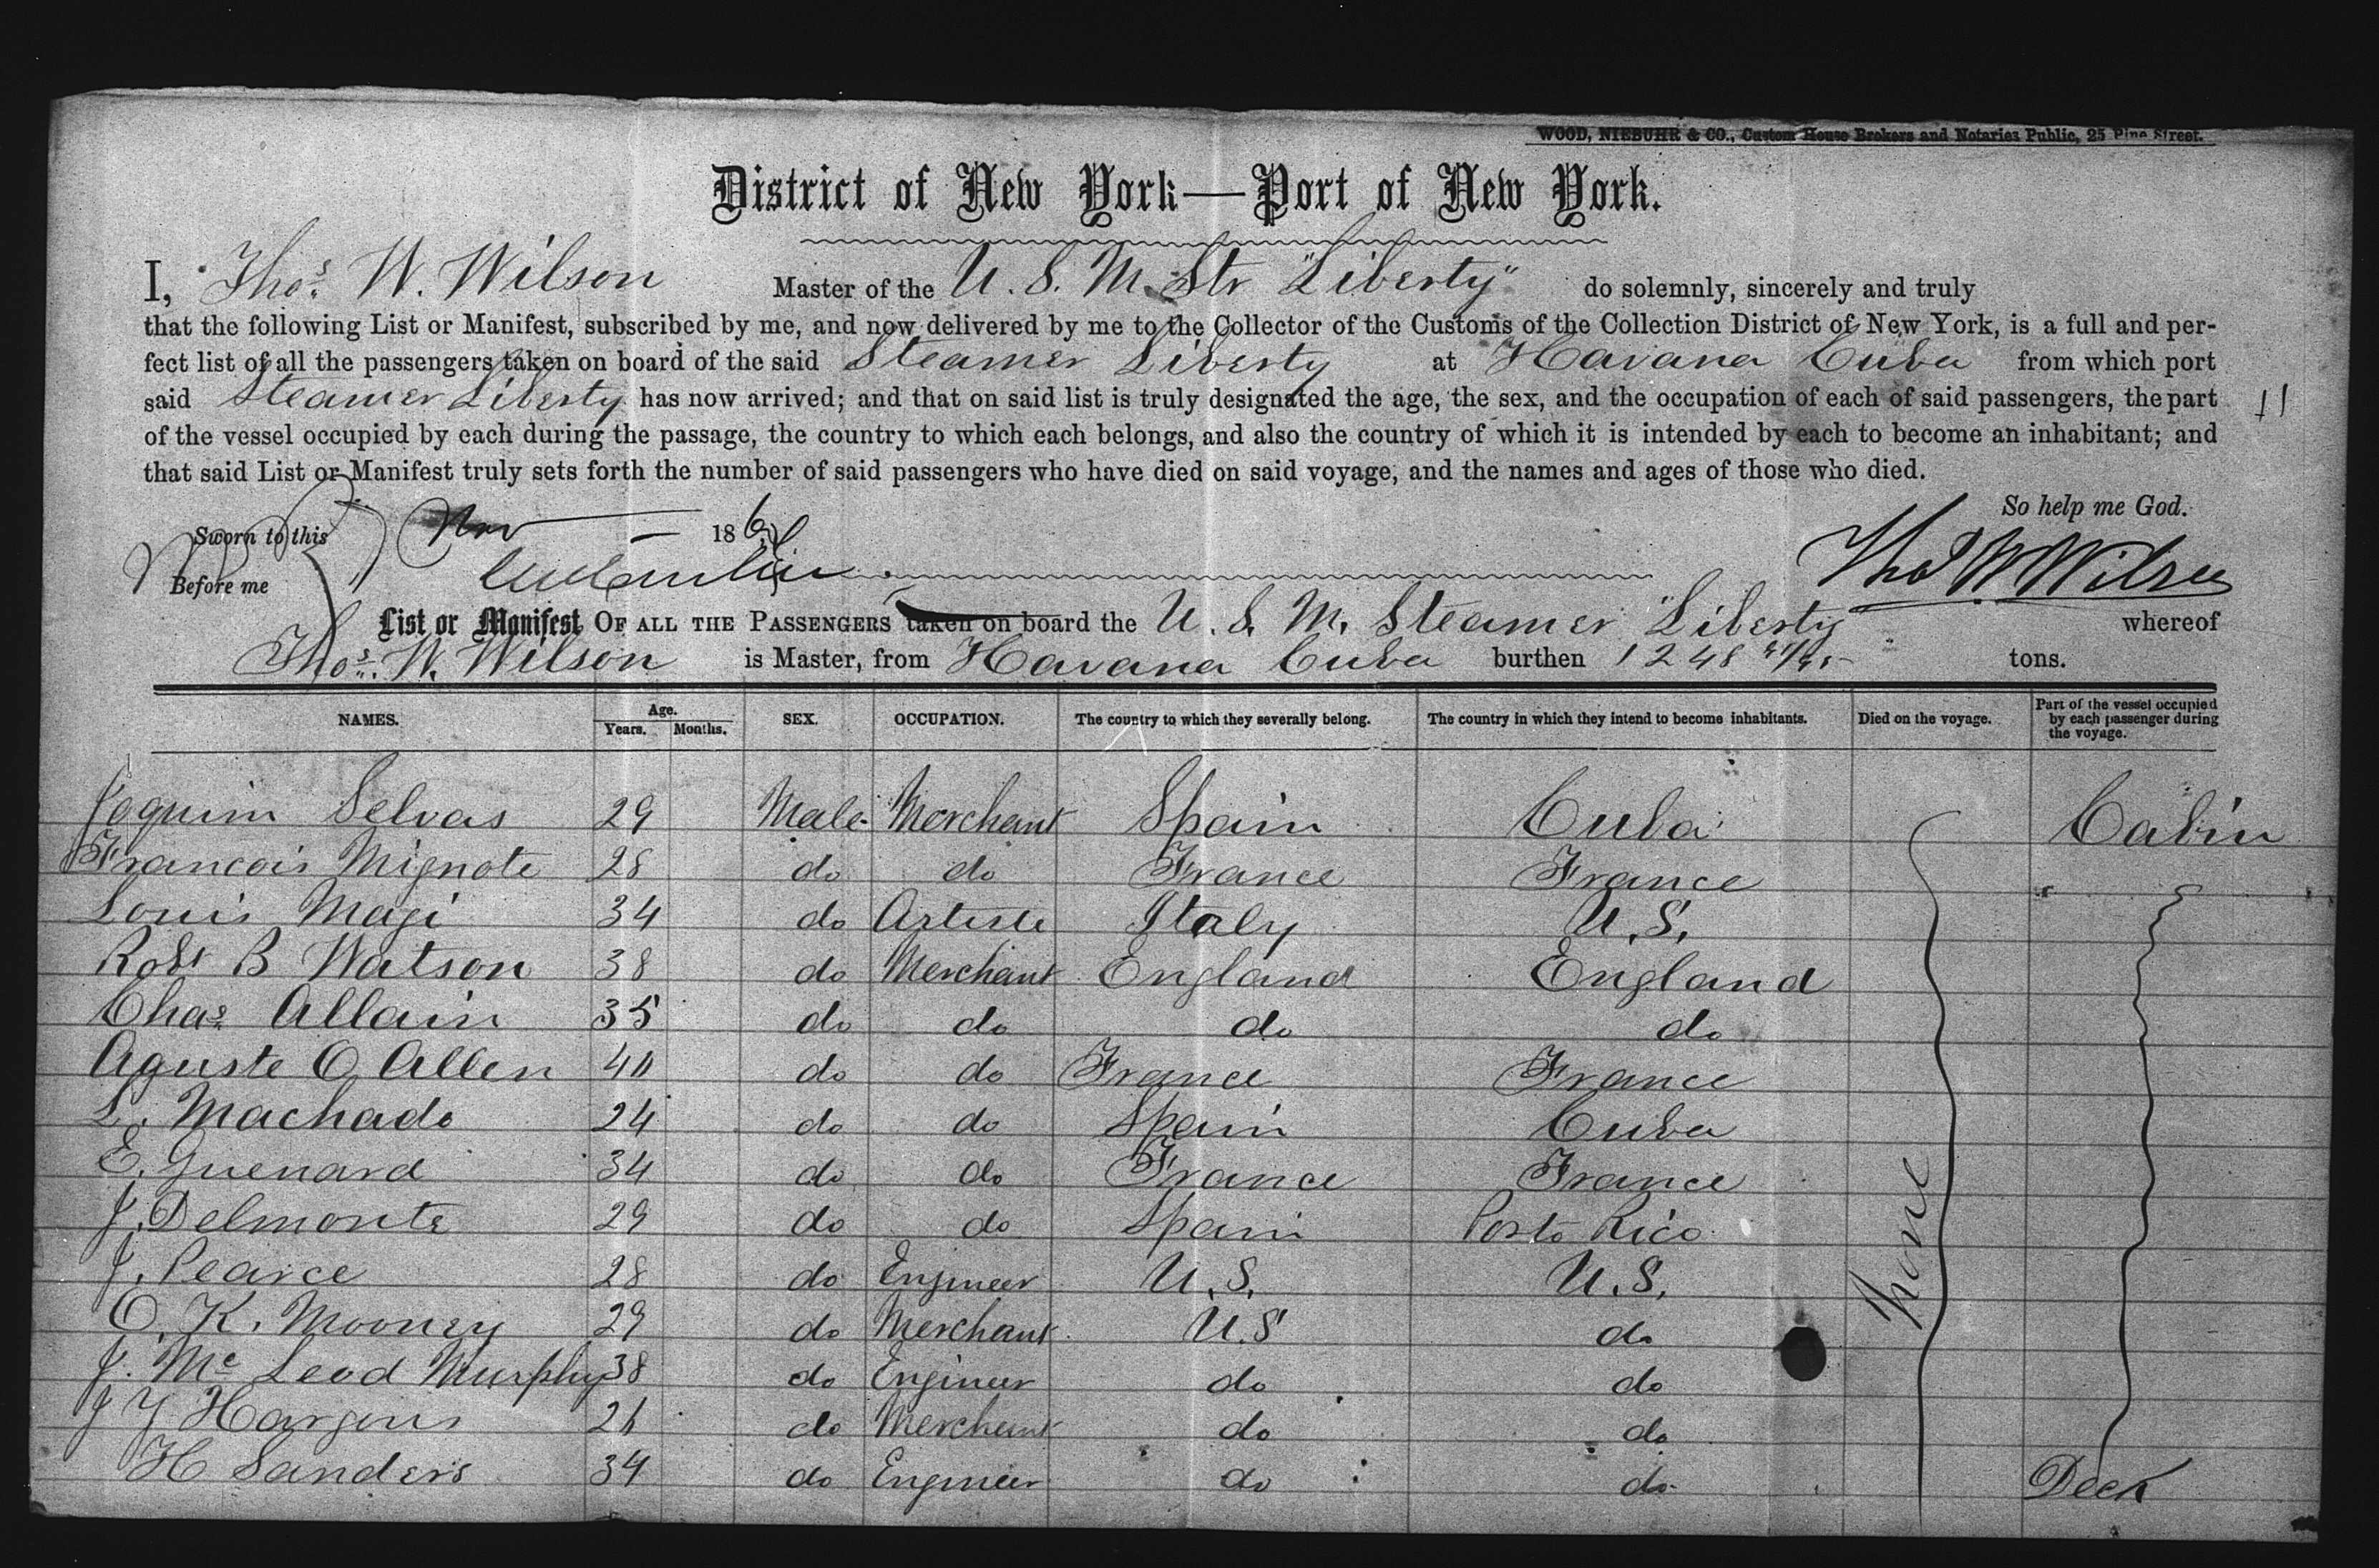 WOOD, NIEBUHR & CO., Custom House Brokers and Notaries Public, 25 Pine Street.
District of New York—Port of New York.
I, Thos. W. Wilson Master of the U. S. M. Str "Liberty" do solemnly, sincerely and truly
that the following List or Manifest, subscribed by me, and now delivered by me to the Collector of the Customs of the Collection District of New York, is a full and per-
fect list of all the passengers taken on board of the said Steamer Liberty at Havana Cuba from which port
said Steamer Liberty has now arrived; and that on said list is truly designated the age, the sex, and the occupation of each of said passengers, the part
of the vessel occupied by each during the passage, the country to which each belongs, and also the country of which it is intended by each to become an inhabitant; and
that said List or Manifest truly sets forth the number of said passengers who have died on said voyage, and the names and ages of those who died.
So help me God.
Sworn to this Nov 186
Before me
Thos W Wilson
List or Manifest OF ALL THE PASSENGERS taken on board the U. S. M. Steamer "Liberty" whereof
Thos. W. Wilson is Master, from Havana Cuba burthen 1248 tons.
NAMES. Age. Years. Months. SEX. OCCUPATION. The country to which they severally belong. The country in which they intend to become inhabitants. Died on the voyage. Part of the vessel occupied by each passenger during the voyage.
Joquim Selvas 29 Male Merchant Spain Cuba Cabin
Francois Mignote 28 do do France France
Louis Magi 34 do Artiste Italy U.S.
Robt B Watson 38 do Merchant England England
Chas Allain 35 do do do do
Aguste O Allen 40 do do France France
L. Machado 24 do do Spain Cuba
E. Guenard 34 do do France France
J. Delmonte 29 do do Spain Porto Rico
J. Pearce 28 do Engineer U.S. U.S. none
O. K. Mooney 29 do Merchant U.S do
J. Mc Leod Murphy 38 do Engineer do do
J Y Hargous 26 do Merchant do do
H Sanders 34 do Engineer do do Deck